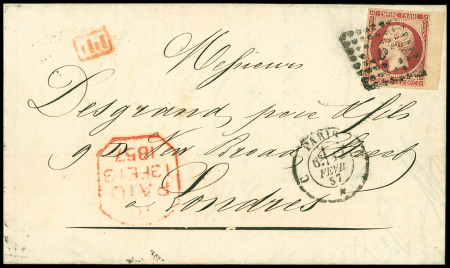 EMPIRE FRANC
P.D.
Messieurs
Desgrand père & fils
9 New Broad Street
à Londres
PARIS
FEVR.
57
PAID
13 FE 13
1857